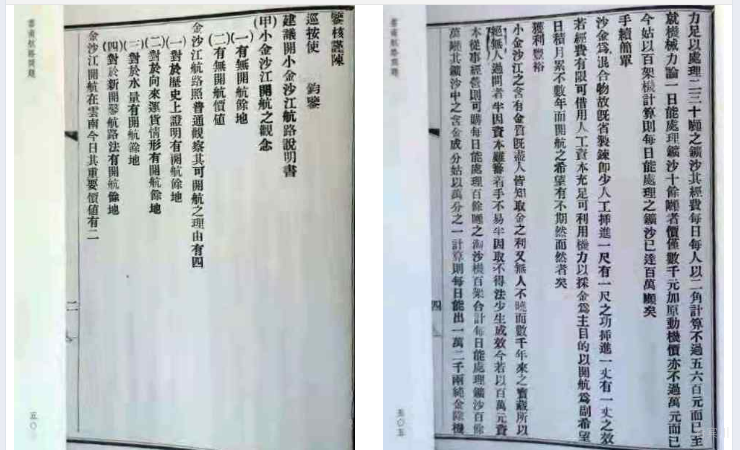 鑒核謹陳
巡按使　鈞鑒
建議開小金沙江航路說明書
(甲)小金沙江開航之觀念
(一)有無開航餘地
(二)有無開航價値
金沙江航路照普通觀察其可開航之理由有四
(一)對於歷史上證明有開航餘地
(二)對於向來運貨情形有開航餘地
(三)對於水量有開航餘地
(四)對於新開鑿航路法有開航餘地
金沙江開航在雲南今日其重要價値有二
雲南航路問題
二
五〇
力足以處理二三十噸之鑛沙其經費每日每人以二角計算不過五六百元而已至
就機械力論一日能處理鑛沙十餘噸者價僅數千元加原動機價亦不過萬元而已
今姑以百架機計算則每日能處理之鑛沙已達百萬噸矣
手續簡單
沙金爲混合物故旣省製鍊卽少人工掃進一尺有一尺之功掃進一丈有一丈之效
若經費有限可借用人工資本充足可利用機力以採金爲主目的以開航爲副希望
日積月累不數年而開航之希望有不期然而然者矣
獲利豐裕
小金沙江之含有金質旣盡人皆知取金之利又無人不曉而數千年來之寶藏所以
絕無人過問者半因資本雖籌着手不易半因取不得法少生成效今若以百萬元資
本從事經營則可購每日能處理百餘噸之淘沙機百架合計每日能處理鑛沙百餘
萬噸其鑛沙中之含金成分姑以萬分之一計算則每日能出一萬二千兩純金除機
雲南航路問題
四
五〇五